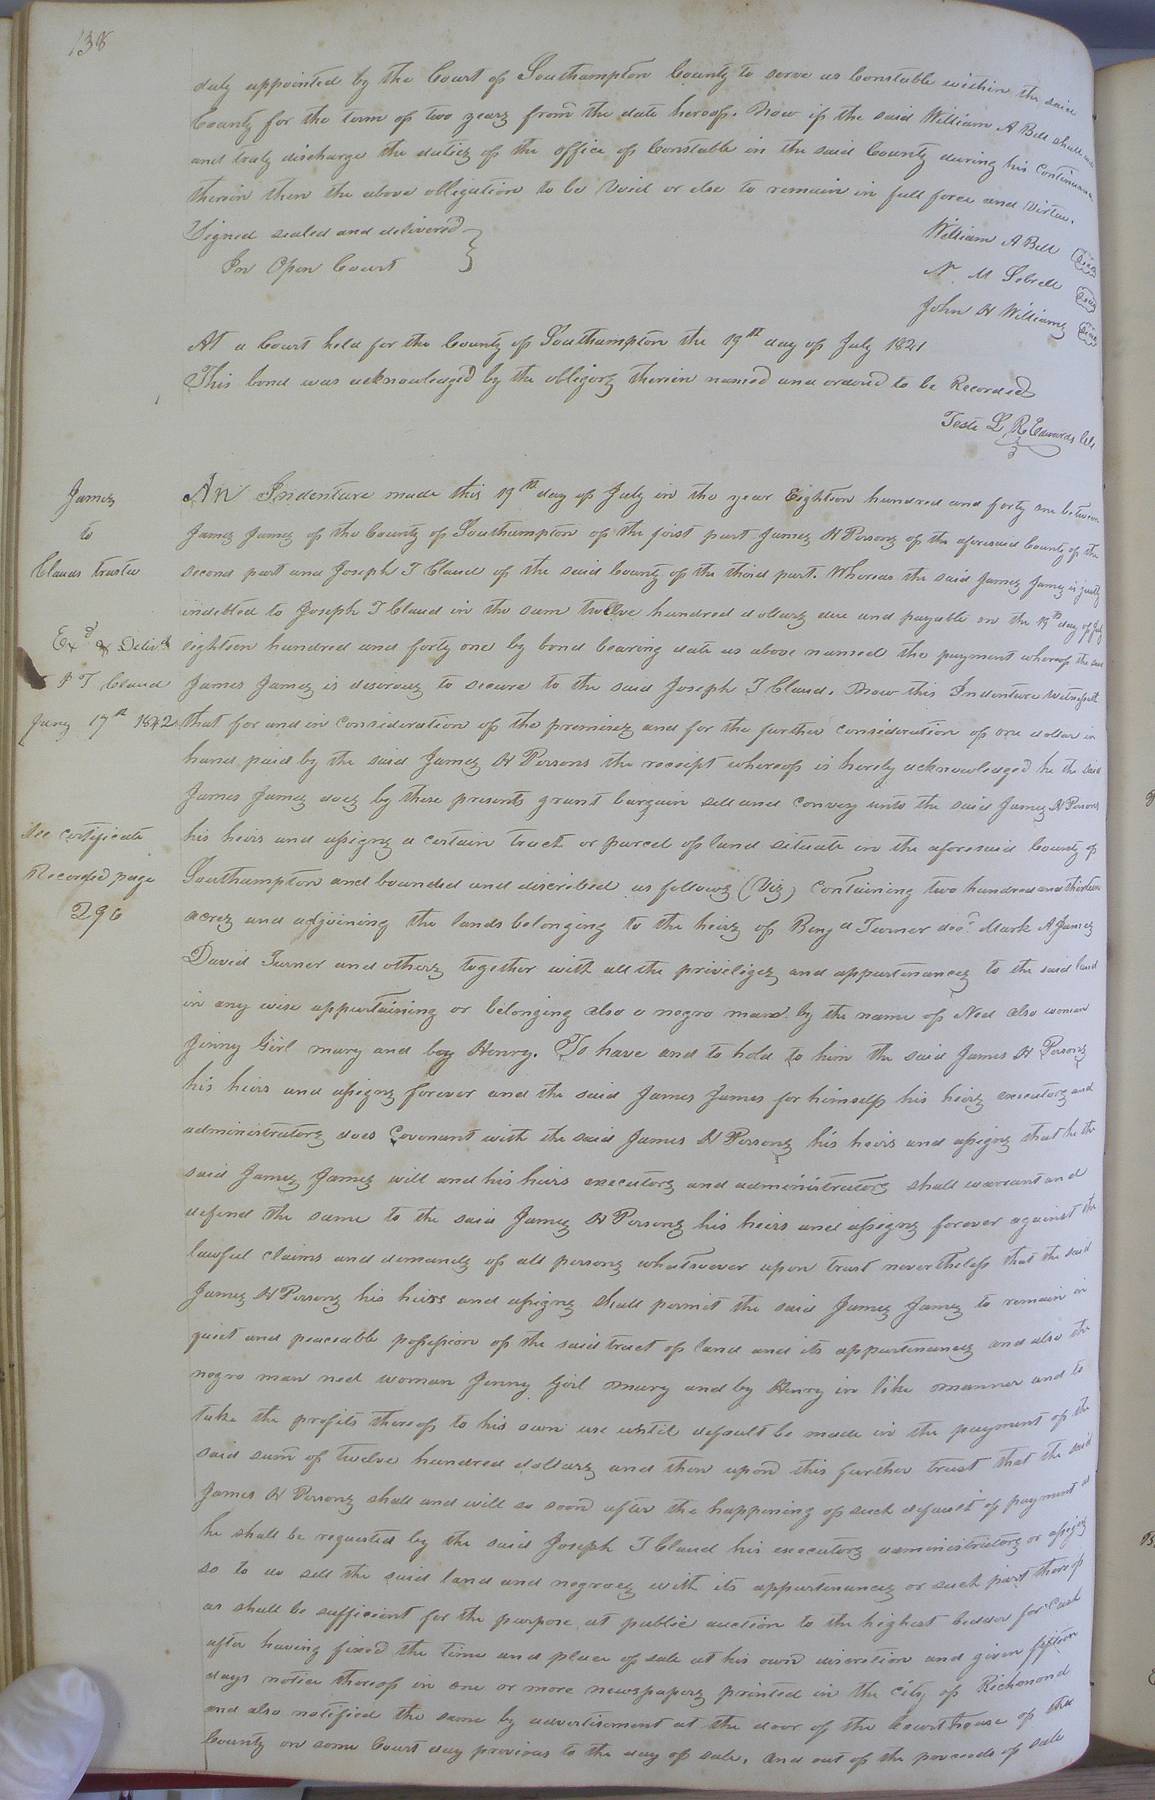 138
duly appointed by the Court of Southampton County to serve as Constable within the said
County for the term of two years from the date hereof. Now if the said William A Bell shall well
and truly discharge the duties of the office of Constable in the said County during his Continuance
therein then the above obligation to be Void or else to remain in full force and Virtue.
Signed sealed and delivered
In Open Court
William A Bell Seal
N. M Sebrell Seal
John H Williams Seal
At a Court held for the County of Southampton the 19th day of July 1821
This bond was acknowledged by the obligors therein named and ordered to be Recorded
Teste L R Edwards Clk
James
to
Clauds trustee
Exd & Delivd
J T Claud
Jany 17th 1842
See certificate
Recorded page
296
An Indenture made this 19th day of July in the year Eighteen hundred and forty one between
James James of the County of Southampton of the first part James H Persons of the aforesaid County of the
second part and Joseph T Claud of the said County of the third part. Whereas the said James James is justly
indebted to Joseph T Claud in the sum twelve hundred dollars due and payable on the 19th day of July
eighteen hundred and forty one by bond bearing date as above named the payment whereof the said
James James is desirous to secure to the said Joseph T Claud. Now this Indenture Witnesseth
that for and in Consideration of the premises and for the further consideration of one dollar in
hand paid by the said James H Persons the receipt whereof is hereby acknowledged he the said
James James does by these presents grant bargain sell and convey unto the said James H Persons
his heirs and assigns a certain tract or parcel of land situate in the aforesaid County of
Southampton and bounded and discribed as follows (Viz) Containing two hundred and thirteen
acres and adjoining the lands belonging to the heirs of Benjn Turner decd. Mark A James
David Turner and others together with all the priviliges and appurtenances to the said land
in any wise appurtaining or belonging also a negro man by the name of Ned also woman
Jinny Girl mary and boy Henry. To have and to hold to him the said James H Persons
his heirs and assigns forever and the said James James for himself his heirs executors and
administrators does Covenant with the said James H Persons his heirs and assigns that he the
said James James will and his heirs executors and administrators shall warrant and
defend the same to the said James H Persons his heirs and assigns forever against the
lawful claims and demands of all persons whatsoever upon trust nevertheless that the said
James H Persons his heirs and assigns shall permit the said James James to remain in
quiet and peaceable possession of the said tract of land and its appurtenances and also the
negro man ned woman Jinny Girl mary and by Henry in like manner and to
take the profits thereof to his own use until default be made in the payment of the
said sum of twelve hundred dollars and then upon this further trust that the said
James H Persons shall and will so soon after the happening of such default of payment as
he shall be requested by the said Joseph T Claud his executors administrators or assigns
so to do sell the said land and negroes with its appurtenances or such part thereof
as shall be sufficient for the purpose at public auction to the highest bidder for Cash
after having fixed the time and place of sale at his own discretion and given fifteen
days notice thereof in one or more newspapers printed in the City of Richmond
and also notified the same by advertisement at the door of the Courthouse of the
County on some Court day previous to the day of sale. And out of the proceeds of sale